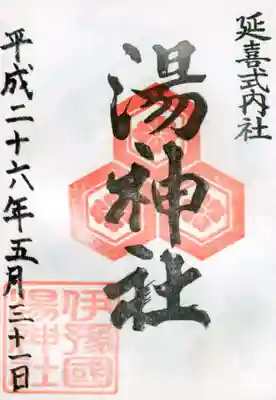 延喜式内社
湯神社
平成二十六年五月三十一日
伊豫國
湯神社